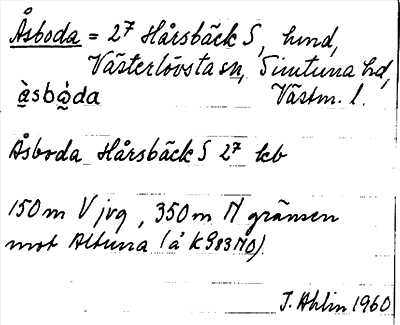 Åsboda = 2⁷ Hårsbäck S, hmd,
Västerlövsta sn, Simtuna hd,
ạ̊̀sbọ̀da Västm. l.
Åsboda Hårsbäck S 2⁷ kb
150 m V jvg, 350 m N gränsen
mot Altuna (å k 983 NO)
J. Ahlin 1960